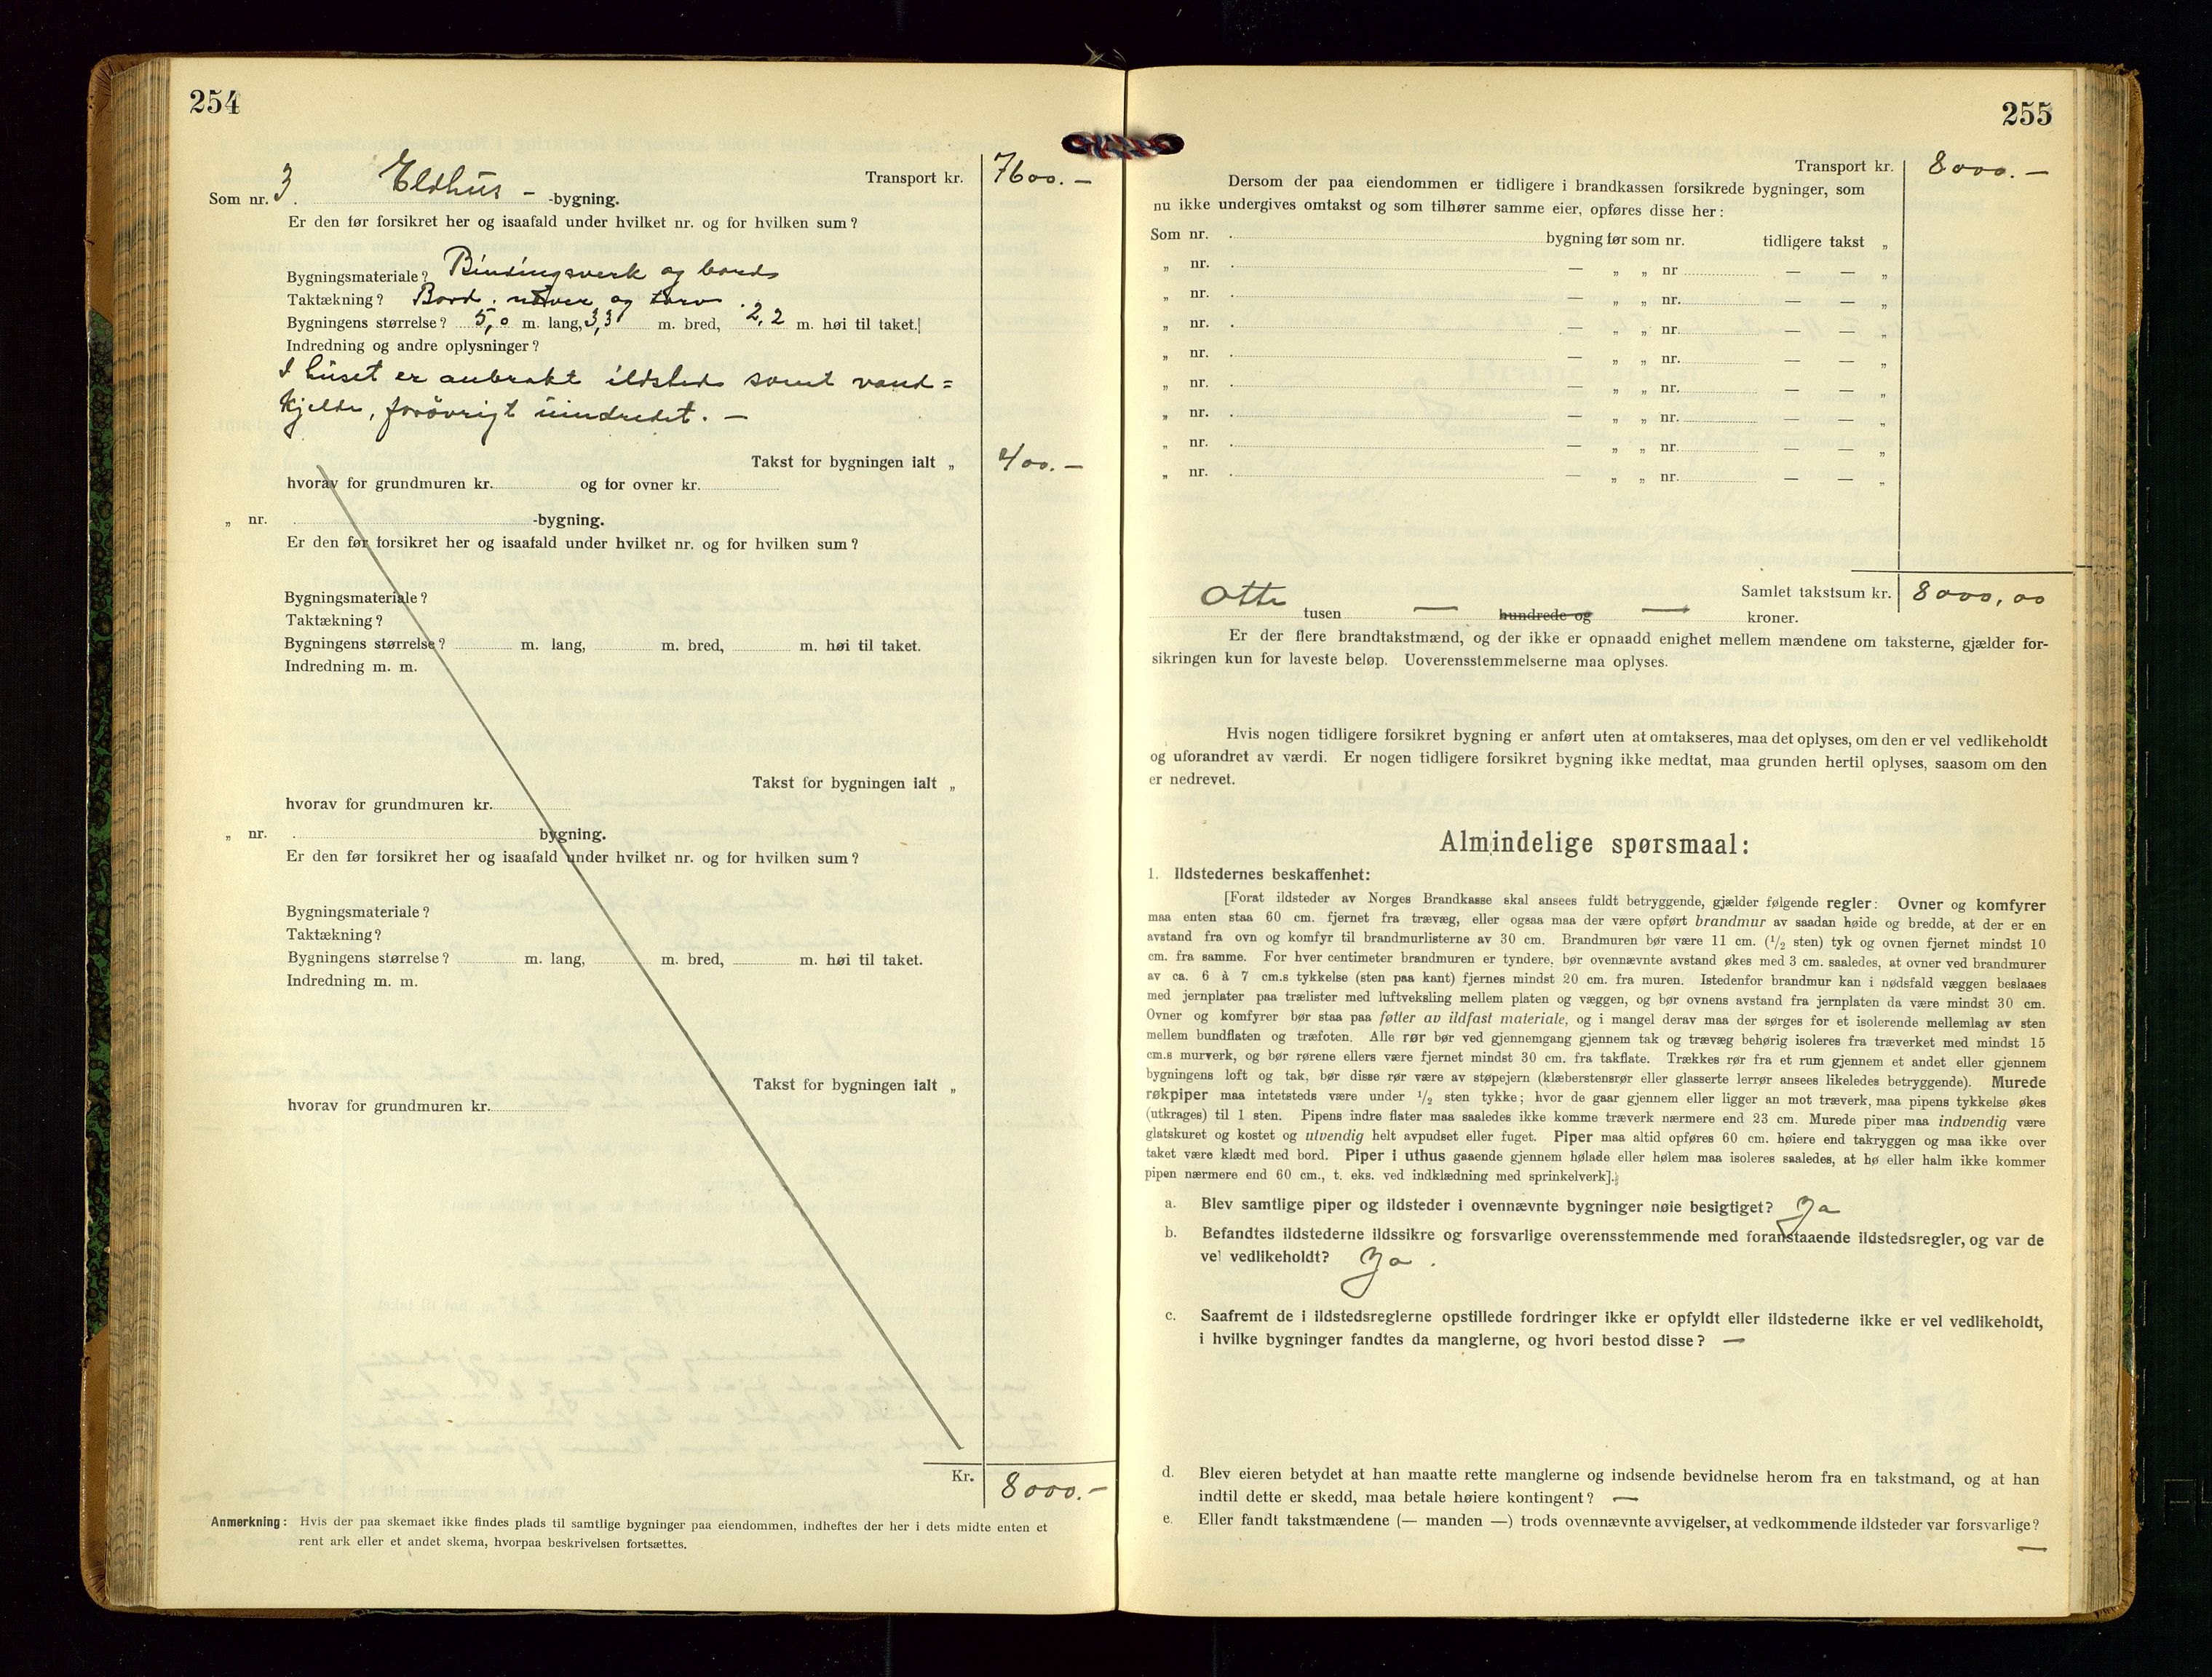 254
Transport kr. 7600.-
Som nr. 3. Eldhus - -bygning.
Er den før forsikret her og isaafald under hvilket nr. og for hvilken sum?
Bygningsmateriale? Bindingsverk og bord
Taktækning? Bord, næver og torv.
Bygningens størrelse? 5,0 m. lang, 3,3 m. bred, 2,2 m. høi til taket.
Indredning og andre oplysninger?
I huset er anbrakt ildsted samt vand=
kjelde, forövrigt uindredet. -
Takst for bygningen ialt „ 400.-
hvorav for grundmuren kr. og for ovner kr.
„ nr. . -bygning.
Er den før forsikret her og isaafald under hvilket nr. og for hvilken sum?
Bygningsmateriale?
Taktækning?
Bygningens størrelse? m. lang, m. bred, m. høi til taket.
Indredning m. m.
Takst for bygningen ialt „
hvorav for grundmuren kr.
„ nr. . bygning.
Er den før forsikret her og isaafald under hvilket nr. og for hvilken sum?
Bygningsmateriale?
Taktækning?
Bygningens størrelse? m. lang, m. bred, m. høi til taket.
Indredning m. m.
Takst for bygningen ialt „
hvorav for grundmuren kr.
Kr. 8000.-
Anmerkning: Hvis der paa skemaet ikke findes plads til samtlige bygninger paa eiendommen, indheftes der her i dets midte enten et
rent ark eller et andet skema, hvorpaa beskrivelsen fortsættes.
255
Transport kr. 8000.-
Dersom der paa eiendommen er tidligere i brandkassen forsikrede bygninger, som
nu ikke undergives omtakst og som tilhører samme eier, opføres disse her:
Som nr. . bygning før som nr. tidligere takst „
„ nr. . — „ „ nr. — — „
„ nr. . — „ „ nr. — — „
„ nr. . — „ „ nr. — — „
„ nr. . — „ „ nr. — — „
„ nr. . — „ „ nr. — — „
„ nr. . — „ „ nr. — — „
„ nr. . — „ „ nr. — — „
„ nr. . — „ „ nr. — — „
Samlet takstsum kr. 8000,00
Otte tusen — hundrede og — kroner.
Er der flere brandtakstmænd, og der ikke er opnaadd enighet mellem mændene om taksterne, gjælder for-
sikringen kun for laveste beløp. Uoverensstemmelserne maa oplyses.
Hvis nogen tidligere forsikret bygning er anført uten at omtakseres, maa det oplyses, om den er vel vedlikeholdt
og uforandret av værdi. Er nogen tidligere forsikret bygning ikke medtat, maa grunden hertil oplyses, saasom om den
er nedrevet.
Almindelige spørsmaal:
1. Ildstedernes beskaffenhet:
[Forat ildsteder av Norges Brandkasse skal ansees fuldt betryggende, gjælder følgende regler: Ovner og komfyrer
maa enten staa 60 cm. fjernet fra trævæg, eller ogsaa maa der være opført brandmur av saadan høide og bredde, at der er en
avstand fra ovn og komfyr til brandmurlisterne av 30 cm. Brandmuren bør være 11 cm. (1/2 sten) tyk og ovnen fjernet mindst 10
cm. fra samme. For hver centimeter brandmuren er tyndere, bør ovennævnte avstand økes med 3 cm. saaledes, at ovner ved brandmurer
av ca. 6 à 7 cm.s tykkelse (sten paa kant) fjernes mindst 20 cm. fra muren. Istedenfor brandmur kan i nødsfald væggen beslaaes
med jernplater paa trælister med luftveksling mellem platen og væggen, og bør ovnens avstand fra jernplaten da være mindst 30 cm.
Ovner og komfyrer bør staa paa føtter av ildfast materiale, og i mangel derav maa der sørges for et isolerende mellemlag av sten
mellem bundflaten og træfoten. Alle rør bør ved gjennemgang gjennem tak og trævæg behørig isoleres fra træverket med mindst 15
cm.s murverk, og bør rørene ellers være fjernet mindst 30 cm. fra takflate. Trækkes rør fra et rum gjennem et andet eller gjennem
bygningens loft og tak, bør disse rør være av støpejern (klæberstensrør eller glasserte lerrør ansees likeledes betryggende). Murede
røkpiper maa intetsteds være under 1/2 sten tykke; hvor de gaar gjennem eller ligger an mot træverk, maa pipens tykkelse økes
(utkrages) til 1 sten. Pipens indre flater maa saaledes ikke komme træverk nærmere end 23 cm. Murede piper maa indvendig være
glatskuret og kostet og utvendig helt avpudset eller fuget. Piper maa altid opføres 60 cm. høiere end takryggen og maa ikke over
taket være klædt med bord. Piper i uthus gaaende gjennem hølade eller hølem maa isoleres saaledes, at hø eller halm ikke kommer
pipen nærmere end 60 cm., t. eks. ved indklædning med sprinkelverk].
a. Blev samtlige piper og ildsteder i ovennævnte bygninger nøie besigtiget? Ja
b. Befandtes ildstederne ildssikre og forsvarlige overensstemmende med foranstaaende ildstedsregler, og var de
vel vedlikeholdt? Ja.
c. Saafremt de i ildstedsreglerne opstillede fordringer ikke er opfyldt eller ildstederne ikke er vel vedlikeholdt,
i hvilke bygninger fandtes da manglerne, og hvori bestod disse? —
d. Blev eieren betydet at han maatte rette manglerne og indsende bevidnelse herom fra en takstmand, og at han
indtil dette er skedd, maa betale høiere kontingent? —
e. Eller fandt takstmændene (— manden —) trods ovennævnte avvigelser, at vedkommende ildsteder var forsvarlige?
—